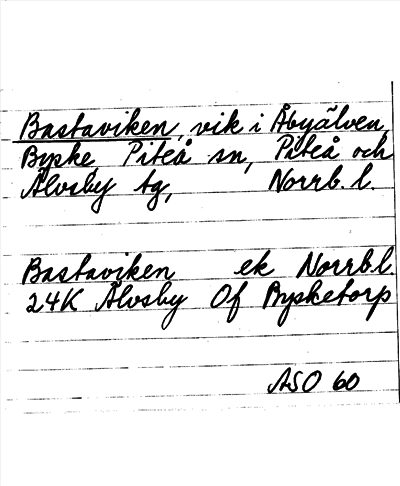 Bastaviken, vik i Åbyälven,
Byske, Piteå sn, Piteå och
Älvsby tg, Norrb. l.
Bastaviken ek Norrb l.
24K Älvsby Of Bysketorp
ASO 60